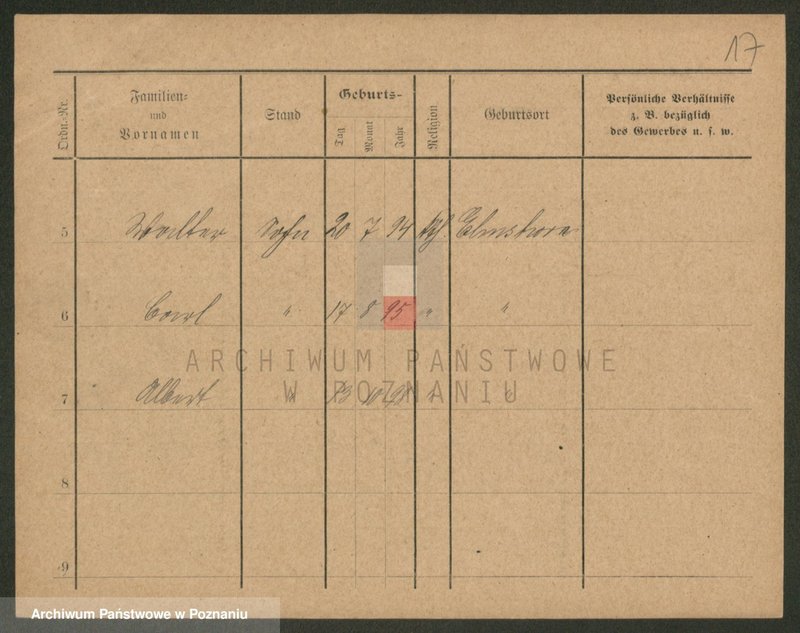 17
Ordn.-Nr.
Familien-
und
Vornamen
Stand
Geburts-
Tag
Monat
Jahr
Religion
Geburtsort
Persönliche Verhältnisse
z. B. bezüglich
des Gewerbes u. s. w.
5 Walter Sohn 20 7 94
6 Carl " 17 8 95 " "
ARCHIWUM PAŃSTWOWE
W POZNANIU
7 Albert " "
8
9
Archiwum Państwowe w Poznaniu